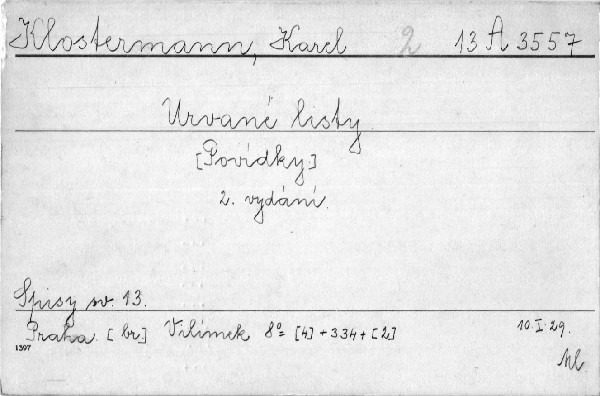 Klostermann, Karel 2 13 A 3557
Urvané listy
[Povídky.]
2. vydání.
Spisy sv. 13.
Praha. [br] Vilímek 8º [4] + 334 + [2] 10.I.29.
1397